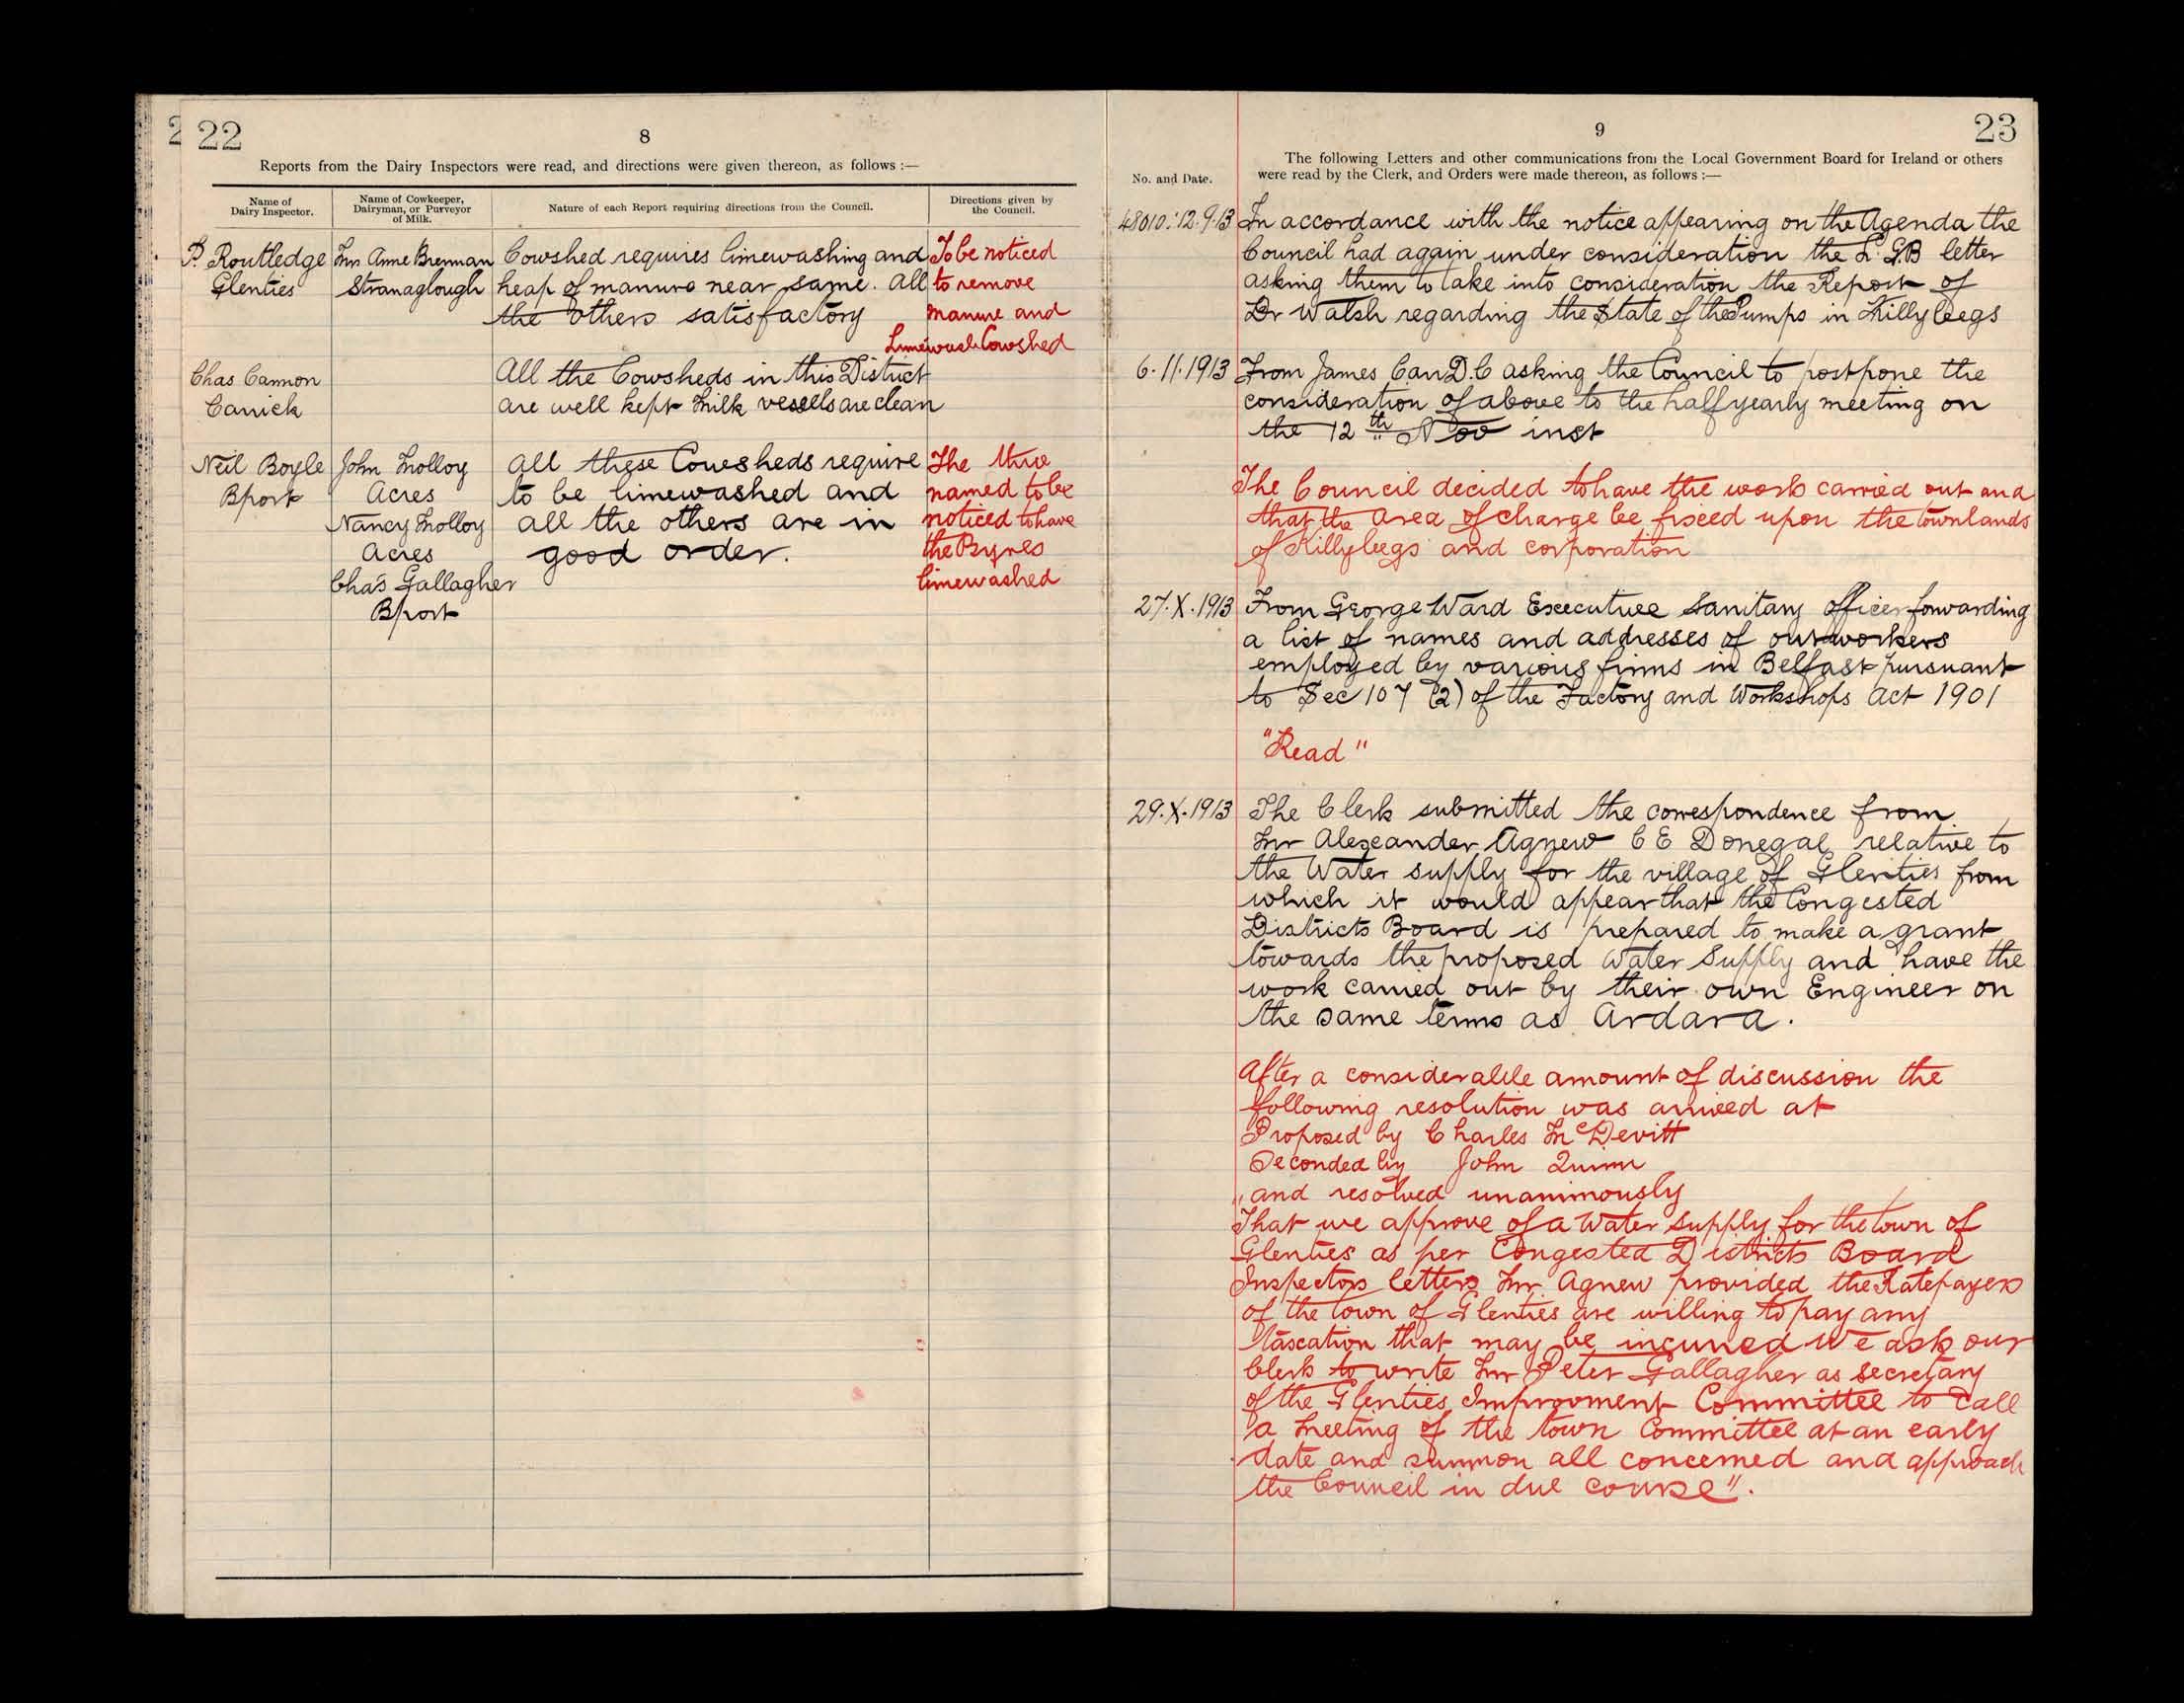 22
8
Reports from the Dairy Inspectors were read, and directions were given thereon, as follows :—
Name of Dairy Inspector.
Name of Cowkeeper, Dairyman, or Purveyor of Milk.
Nature of each Report requiring directions from the Council.
Directions given by the Council.
P. Routledge
Glenties
Mrs Anne Brennan
Stranaglough
Cowshed requires limewashing and
heap of manure near same. All
the others satisfactory
To be noticed
to remove
manure and
Limewash Cowshed
Chas Cannon
Carrick
All the Cowsheds in this District
are well kept Milk vessels are clean
Neil Boyle
Bport
John Molloy
Acres
Nancy Molloy
Acres
Chas Gallagher
Bport
All these Cowsheds require
to be limewashed and
all the others are in
good order.
The three
named to be
noticed to have
the Byres
limewashed
23
9
The following Letters and other communications from the Local Government Board for Ireland or others
were read by the Clerk, and Orders were made thereon, as follows :—
No. and Date.
48010:12.9.13 In accordance with the notice appearing on the Agenda the
Council had again under consideration the L.G.B letter
asking them to take into consideration the Report of
Dr Walsh regarding the State of the Pumps in Killybegs
6.11.1913 From James Carr D.C asking the Council to postpone the
consideration of above to the half yearly meeting on
the 12th Nov inst
The Council decided to have the work carried out and
that the area of charge be fixed upon the townlands
of Killybegs and corporation
27.X.1913 From George Ward Executive Sanitary officer forwarding
a list of names and addresses of outworkers
employed by various firms in Belfast pursuant
to Sec 107 (2) of the Factory and Workshops Act 1901
"Read"
29.X.1913 The Clerk submitted the correspondence from
Mr Alexander Agnew C E Donegal relative to
the Water supply for the village of Glenties from
which it would appear that the Congested
Districts Board is prepared to make a grant
towards the proposed Water Supply and have the
work carried out by their own Engineer on
the same terms as Ardara.
After a considerable amount of discussion the
following resolution was arrived at
Proposed by Charles McDevitt
Seconded by John Quinn
"and resolved unanimously
That we approve of a Water supply for the town of
Glenties as per Congested Districts Board
Inspectors letters Mr Agnew provided the Ratepayers
of the town of Glenties are willing to pay any
taxcation that may be incurred We ask our
Clerk to write Mr Peter Gallagher as secretary
of the Glenties Improvment Committee to call
a Meeting of the town Committee at an early
date and summon all concerned and approach
the Council in due course".